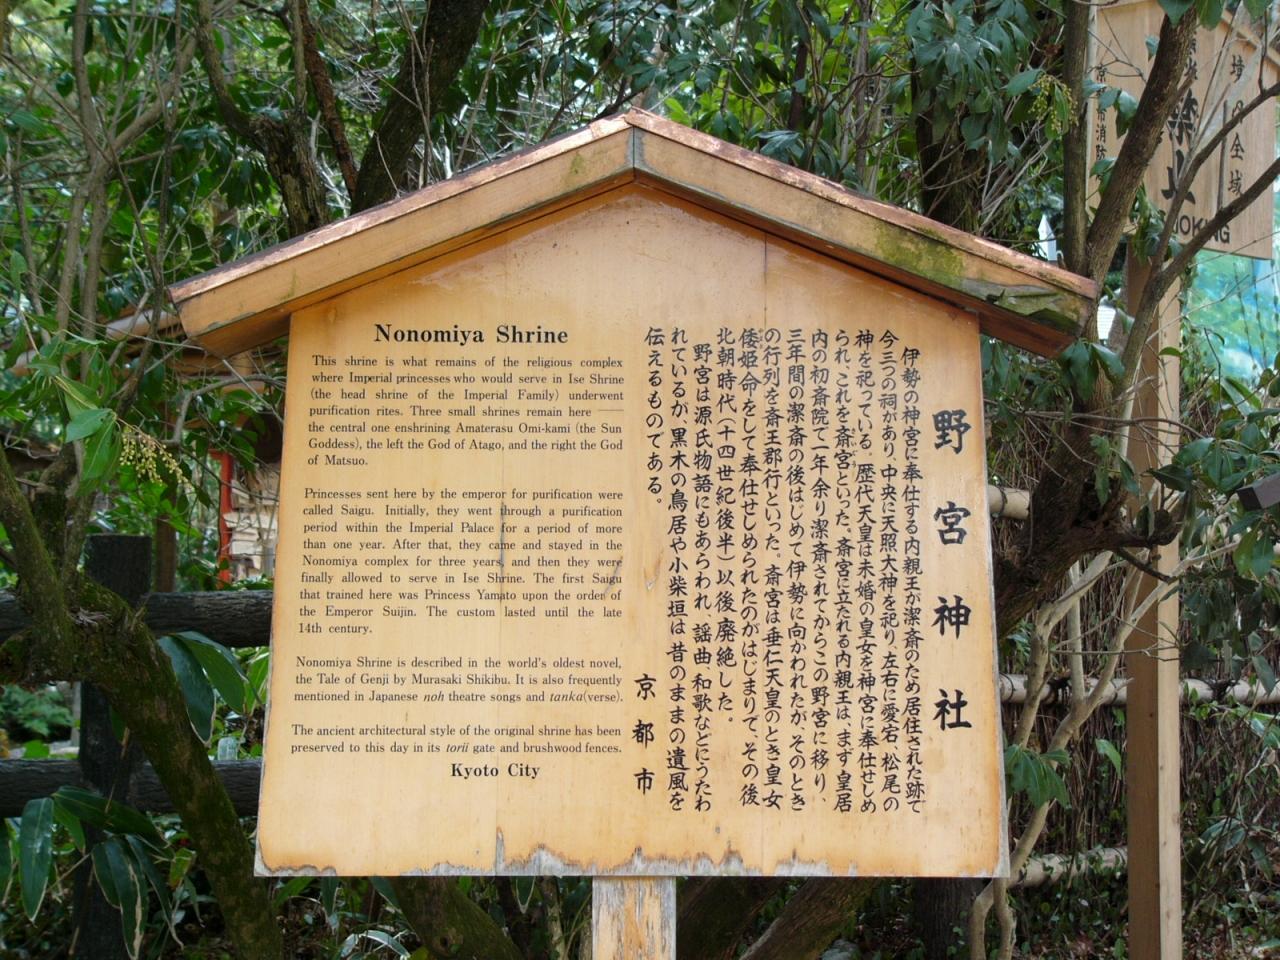 Nonomiya Shrine
This shrine is what remains of the religious complex
where Imperial princesses who would serve in Ise Shrine
(the head shrine of the Imperial Family) underwent
purification rites. Three small shrines remain here —
the central one enshrining Amaterasu Omi-kami (the Sun
Goddess), the left the God of Atago, and the right the God
of Matsuo.
Princesses sent here by the emperor for purification were
called Saigu. Initially, they went through a purification
period within the Imperial Palace for a period of more
than one year. After that, they came and stayed in the
Nonomiya complex for three years, and then they were
finally allowed to serve in Ise Shrine. The first Saigu
that trained here was Princess Yamato upon the order of
the Emperor Suijin. The custom lasted until the late
14th century.
Nonomiya Shrine is described in the world's oldest novel,
the Tale of Genji by Murasaki Shikibu. It is also frequently
mentioned in Japanese noh theatre songs and tanka(verse).
The ancient architectural style of the original shrine has been
preserved to this day in its torii gate and brushwood fences.
Kyoto City
野宮神社
伊勢の神宮に奉仕する内親王が潔斎のため居住された跡で
今三つの祠があり、中央に天照大神を祀り、左右に愛宕、松尾の
神を祀っている。歴代天皇は未婚の皇女を神宮に奉仕せしめ
られ、これを斎宮といった。斎宮に立たれる内親王は、まず皇居
内の初斎院で一年余り潔斎されてからこの野宮に移り、
三年間の潔斎の後はじめて伊勢に向かわれたが、そのとき
の行列を斎王郡行といった。斎宮は垂仁天皇のとき皇女
倭姫命をして奉仕せしめられたのがはじまりで、その後
北朝時代(十四世紀後半)以後廃絶した。
野宮は源氏物語にもあらわれ、謡曲和歌などにうたわ
れているが、黒木の鳥居や小柴垣は昔のままの遺風を
伝えるものである。
京都市
境の全域
禁